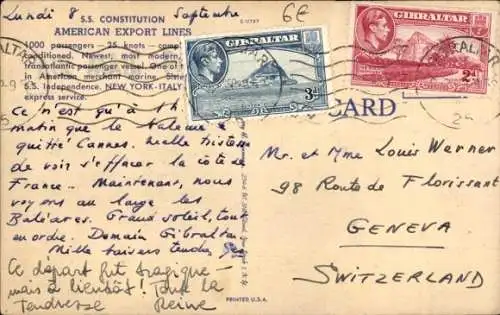 Lundi 8 Septembre
6€
S.S. CONSTITUTION
AMERICAN EXPORT LINES
1000 passengers — 25 knots — compl
conditioned. Newest, most modern,
transatlantic passenger vessel. One of
in American merchant marine. Siste
S.S. Independence. NEW YORK-ITALY
express service.
GIBRALTAR
3d
GIBRALTAR
2d
CARD
Ce n'est qu'à
matin que le bateau a
quitté Cannes. Quelle tristesse
de voir s'effacer la côte de
France. Maintenant, nous
voyons au large les
Baléares. Grand soleil, tout
en ordre. Demain Gibraltar.
Mille baisers tendres
Ce départ fut tragique —
mais à bientôt! Toute la
Tendresse
Reine
Mr. et Mme Louis Werner
98 Route de Florissant
GENEVA
SWITZERLAND
PRINTED U.S.A.